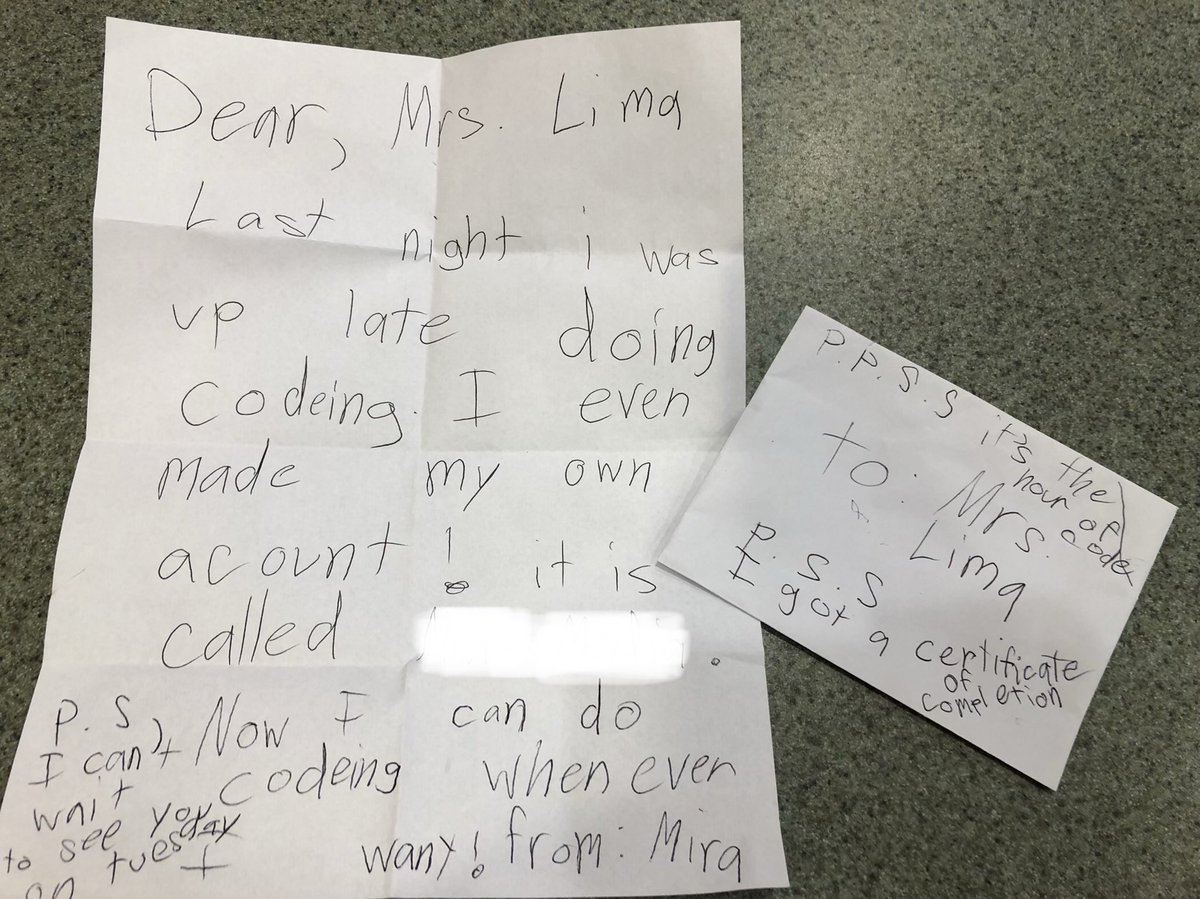 Dear, Mrs. Lima
Last night i was
up late doing
codeing. I even
made my own
acount! it is
called
Now I can do
codeing when ever
I want! from: Mira
P.S,
I can't
wait
to see you
on tuesday
P.P.S.S it's the
hour of
code
to: Mrs.
Lima
P.S.S
I got a certificate
of
completion